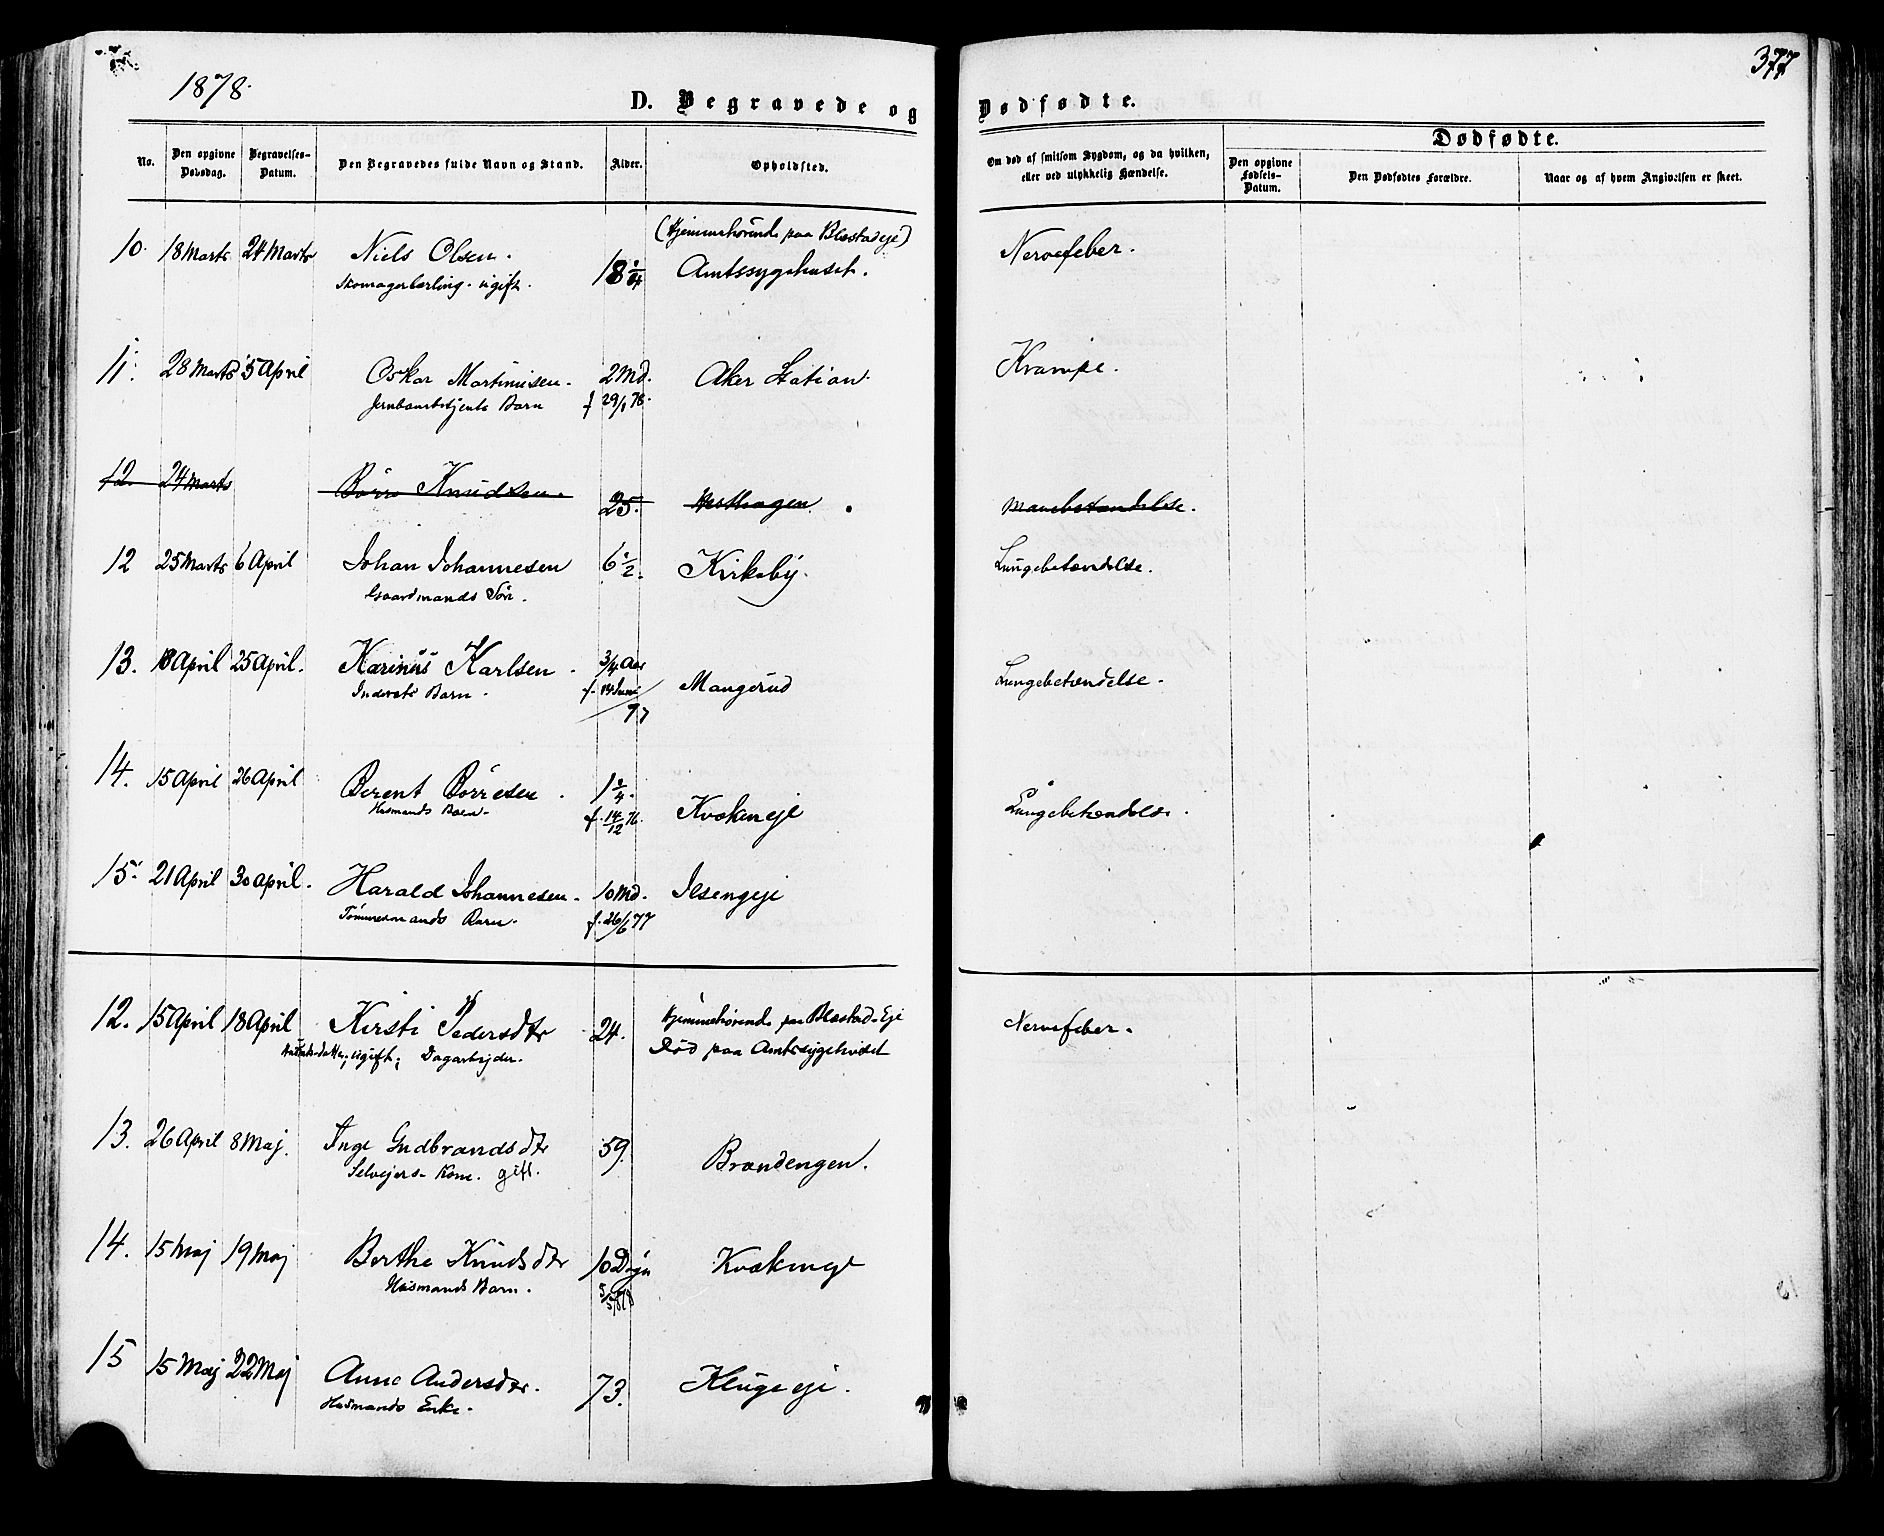 1878.
377
D. Begravede og Dødfødte.
No.
Den opgivne Dødsdag.
Begravelses-Datum.
Den Begravedes fulde Navn og Stand.
Alder.
Opholdsted.
Om død af smitsom Sygdom, og da hvilken, eller ved ulykkelig Hændelse.
Dødfødte.
Den opgivne Fødsels-Datum.
Den Dødfødtes Forældre.
Naar og af hvem Angivelsen er skeet.
(Hjemmehørende paa Blæstadeje)
10. 18 Marts 24 Marts Niels Olsen. 18 1/4 Amtssygehuset. Nervefeber.
Skomagerlærling. ugift.
11. 28 Marts 5 April Oskar Martinusen. 2 Md. Aker Station. Krampe.
Jernbanebetjents Barn f 29/1 78.
12. 24 Marts Børre Knudsen. 25. Mavebetændelse.
12 25 Marts 6 April Johan Johannesen 6 1/2. Kirkeby. Lungebetændelse.
Gaardmands Søn.
13. 18 April 25 April. Karinus Karlsen. 3/4 Aar Mangerud Lungebetændelse.
Indersts Barn. f. 14 Juni / 77
14. 15 April 26 April Berent Børresen. 1 1/4. Kvækeneje Lungebetændelse.
Husmands Barn. f. 14/12 76.
15. 21 April 30 April. Harald Johannesen. 10 Md. Ilsengeje
Tømmermands Barn. f. 26/6 77
12. 15 April 18 April Kirsti Pedersdtr 24. Hjemmehørende paa Blæstad-Eje Nervefeber.
ugift; Dagarbejder. Død paa Amtssygehuset
13. 26 April 8 Maj. Inge Gudbrandsdtr 59. Brændengen.
Selvejers Kone. gift.
14. 15 Maj 19 Maj Berthe Knudsdtr 10 Døgn
Husmands Barn. 5/5 1878
15 15 Maj 22 Maj Anne Andersdtr. 73. Klugeeje.
Husmands Enke.